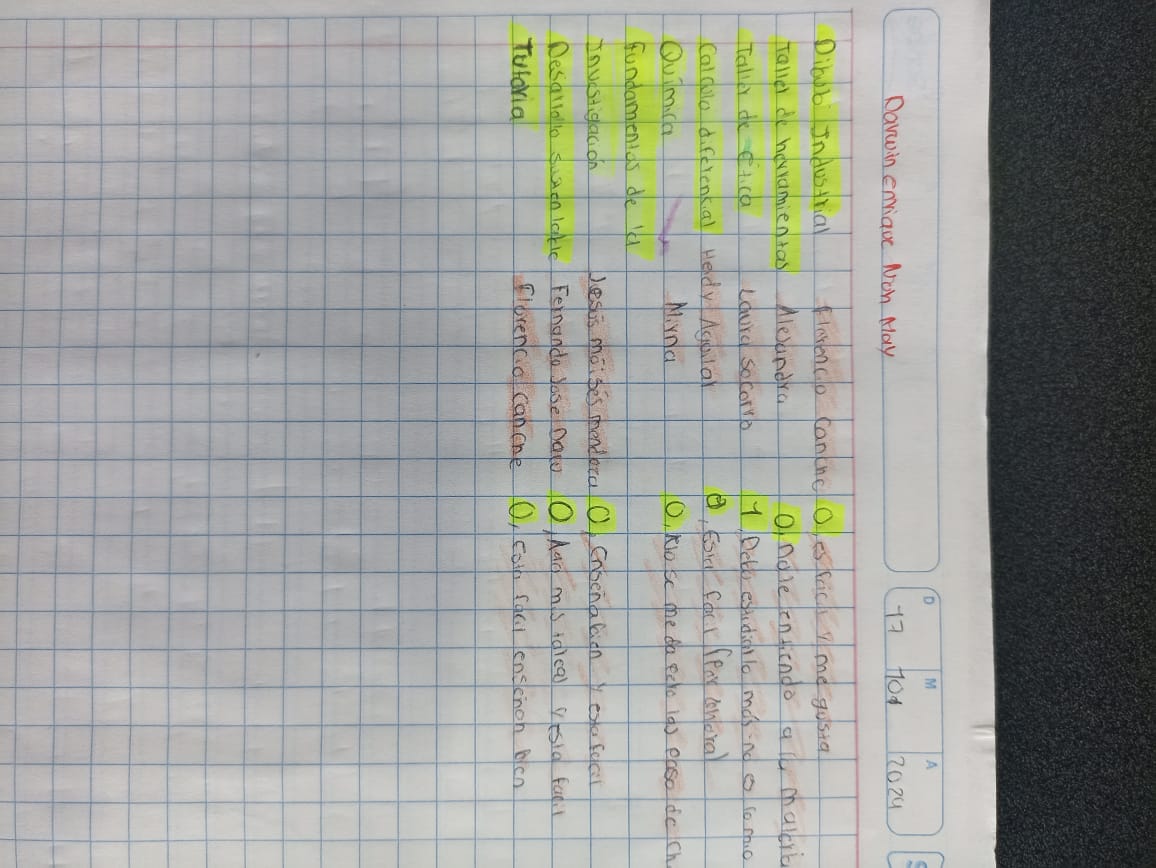 Darwin enrique Noh May
D M A
17 10 2024
Dibujo Industrial Florencio Canche O, es facil y me gusta
Taller de herramientas Alexandra O, no le entiendo a la
Taller de ética Laura Socorro 1, Debo estudiarla más no es como
Calculo diferencial Heidy Aguilar 0, Esta facil (Por ahora)
Química Mirna O, No se me da pero las paso de
Fundamentos de la
Investigación Jesús moises mendoza O, Enseña bien y esta facil
Desarrollo sustentable Fernando Jose O, Hago mis tareas y esta facil
Tutoria Florencio canche O, esta facil enseñan bien